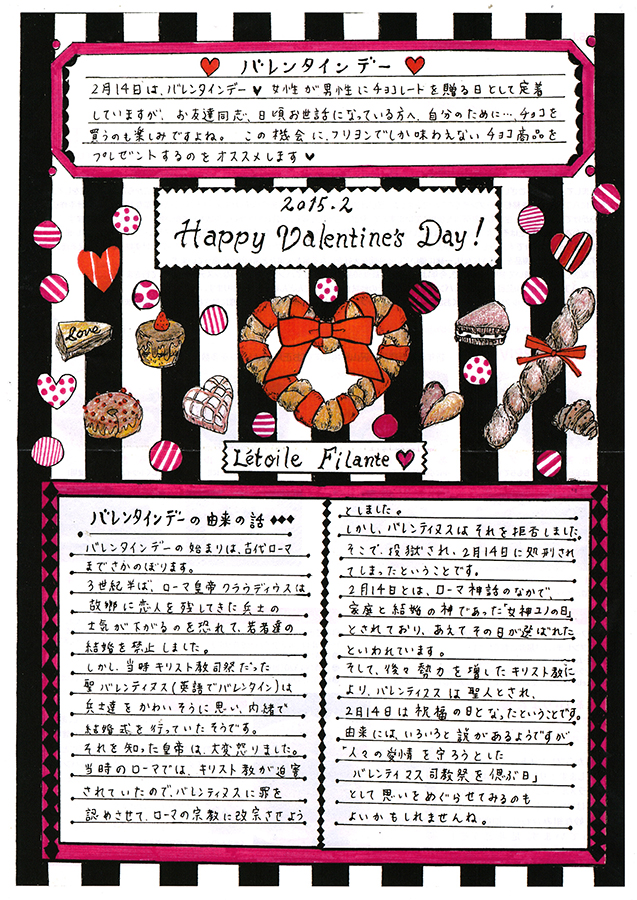 バレンタインデー
2月14日は、バレンタインデー♥ 女性が男性にチョコレートを贈る日として定着
していますが、お友達同志、日頃お世話になっている方へ、自分のために…チョコを
買うのも楽しみですよね。この機会に、フリヨンでしか味わえないチョコ商品を
プレゼントするのをオススメします♥
2015.2
Happy Valentine's Day!
Love
Létoile Filante
バレンタインデーの由来の話
バレンタインデーの始まりは、古代ローマ
までさかのぼります。
3世紀半ば、ローマ皇帝クラウディウスは
故郷に恋人を残してきた兵士の
士気が下がるのを恐れて、若者達の
結婚を禁止しました。
しかし、当時キリスト教司祭だった
聖バレンティヌス(英語でバレンタイン)は
兵士達をかわいそうに思い、内緒で
結婚式を行っていたそうです。
それを知った皇帝は、大変怒りました。
当時のローマでは、キリスト教が迫害
されていたので、バレンティヌスに罪を
認めさせて、ローマの宗教に改宗させよう
としました。
しかし、バレンティヌスはそれを拒否しました。
そこで、投獄され、2月14日に処刑され
てしまったということです。
2月14日とは、ローマ神話のなかで、
家庭と結婚の神であった「女神ユノの日」
とされており、あえてその日が選ばれた
といわれています。
そして、後々勢力を増したキリスト教に
より、バレンティヌスは聖人とされ、
2月14日は祝福の日となったということです。
由来には、いろいろと説があるようですが
「人々の愛情を守ろうとした
バレンティマス司教祭を偲ぶ日」
として思いをめぐらせてみるのも
よいかもしれませんね。